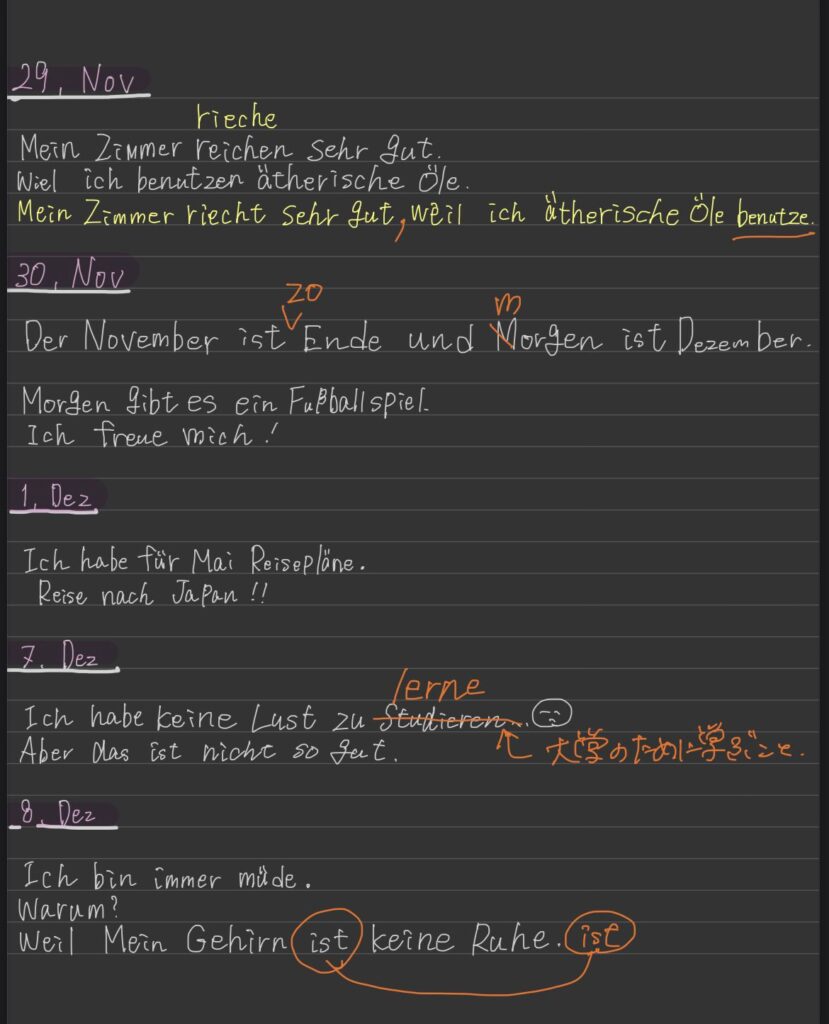 29, Nov
rieche
Mein Zimmer reichen sehr gut.
Wiel ich benutzen ätherische Öle.
Mein Zimmer riecht sehr gut, weil ich ätherische Öle benutze.
30, Nov
zo m
Der November ist Ende und Morgen ist Dezember.
Morgen gibt es ein Fußballspiel.
Ich freue mich!
1, Dez
Ich habe für Mai Reisepläne.
Reise nach Japan!!
7, Dez
lerne
Ich habe keine Lust zu Studieren...
Aber das ist nicht so gut. 大学のために学ぶこと.
8, Dez
Ich bin immer müde.
Warum?
Weil Mein Gehirn ist keine Ruhe. ist